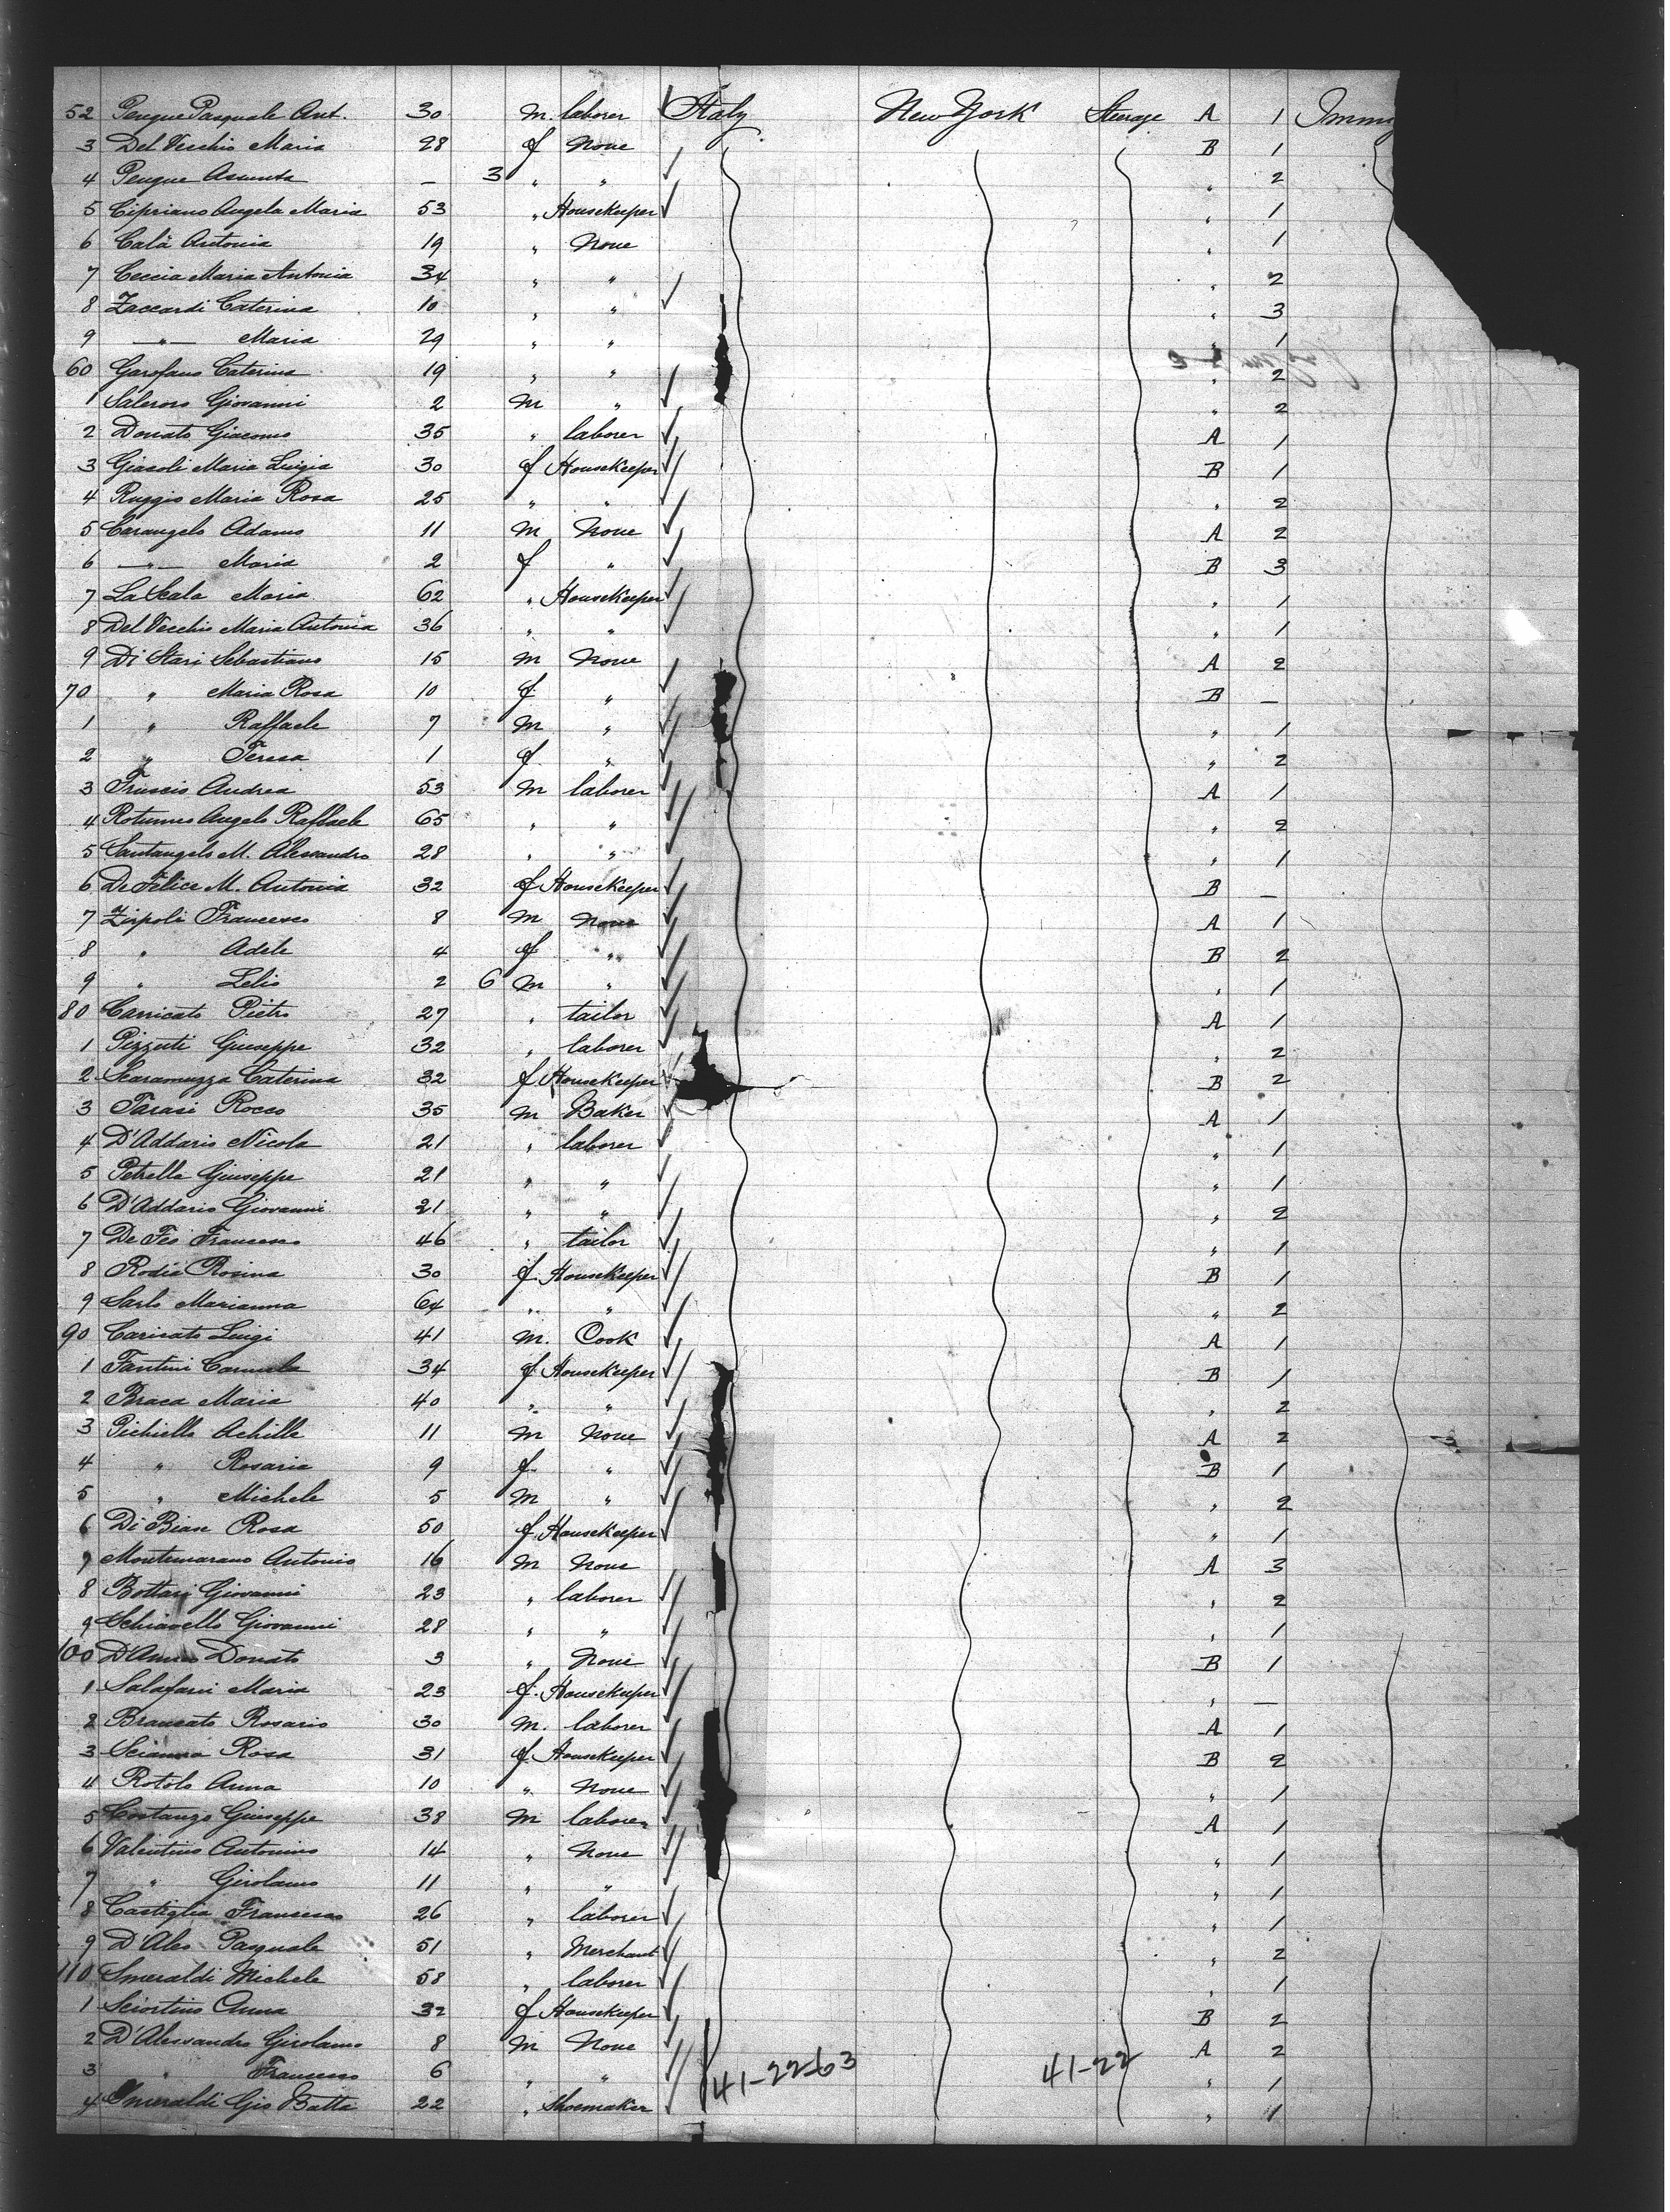 52 Pengue Pasquale Ant. 30 m. laborer Italy New York Steerage A 1
3 Del Vecchio Maria 28 f None B 1
4 Pengue Assunta — 3 " " " 2
5 Cipriano Angela Maria 53 " Housekeeper " 1
6 Calà Antonia 19 " None " 1
7 Ceccia Maria Antonia 34 " " " 2
8 Zaccardi Caterina 10 " " " 3
9 —"— Maria 29 " " " 1
60 Garofano Caterina 19 " " " 2
1 Salerno Giovanni 2 m " " 2
2 Donato Giacomo 35 " laborer A 1
3 Giasoli Maria Luigia 30 f Housekeeper B 1
4 Ruggio Maria Rosa 25 " " " 2
5 Carangelo Adamo 11 m None A 2
6 —"— Maria 2 f " B 3
7 La Scala Maria 62 " Housekeeper " 1
8 Del Vecchio Maria Antonia 36 " " " 1
9 Di Stasi Sebastiano 15 m None A 2
70 " Maria Rosa 10 f " B —
1 " Raffaele 7 m " " 1
2 " Teresa 1 f " " 2
3 Fruscio Andrea 53 m laborer A 1
4 Rotunno Angelo Raffaele 65 " " " 2
5 Santangelo M. Alessandro 28 " " " 1
6 De Felice M. Antonia 32 f Housekeeper B —
7 Zirpoli Francesco 8 m None A 1
8 " Adele 4 f " B 2
9 " Lelio 2 6 m " " 1
80 Carricato Pietro 27 " tailor A 1
1 Pizzuti Giuseppe 32 " laborer " 2
2 Scaramuzza Caterina 32 f Housekeeper B 2
3 Tarasi Rocco 35 m Baker A 1
4 D'Addario Nicola 21 " laborer " 1
5 Petrella Giuseppe 21 " " " 1
6 D'Addario Giovanni 21 " " " 2
7 De Feo Francesco 46 " tailor " 1
8 Rodia Rosina 30 f Housekeeper B 1
9 Sarlo Marianna 64 " " " 2
90 Caricato Luigi 41 m. Cook A 1
1 Fantini Carmela 34 f Housekeeper B 1
2 Braca Maria 40 " " " 2
3 Pichiello Achille 11 m None A 2
4 " Rosaria 9 f " B 1
5 " Michele 5 m " " 2
6 Di Biase Rosa 50 f Housekeeper " 1
7 Montemarano Antonio 16 m None A 3
8 Bottari Giovanni 23 " laborer " 2
9 Schiavello Giovanni 28 " " " 1
100 D'Amico Donato 3 " None B 1
1 Salafani Maria 23 f. Housekeeper " —
2 Brancato Rosario 30 m. laborer A 1
3 Scianna Rosa 31 f Housekeeper B 2
4 Rotolo Anna 10 " None " 1
5 Costanzo Giuseppe 38 m laborer A 1
6 Valentino Antonino 14 " None " 1
7 " Girolamo 11 " " " 1
8 Castiglia Francesco 26 " laborer " 1
9 D'Aleo Pasquale 51 " Merchant " 2
110 Smeraldi Michele 58 " laborer " 1
1 Sciortino Anna 32 f Housekeeper B 2
2 D'Alessandro Girolamo 8 m None A 2
3 " Francesco 6 " " " 1
41-22-63 41-22
4 Smeraldi Gio Batta 22 " Shoemaker " 1